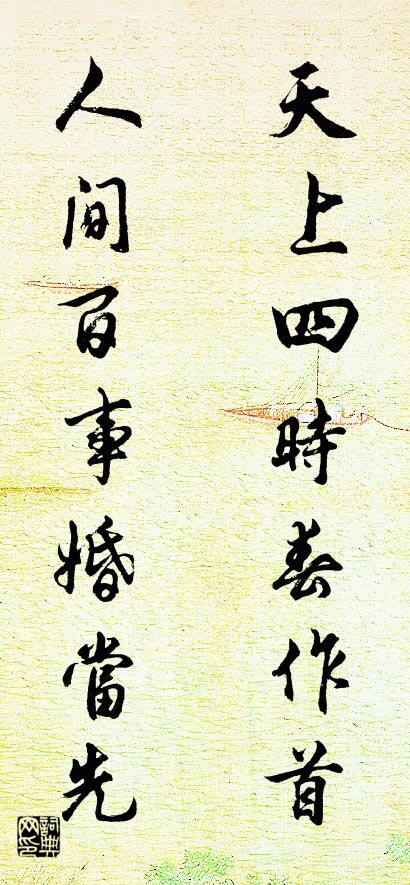 天上四時春作首
人間百事婚當先
詞典网印